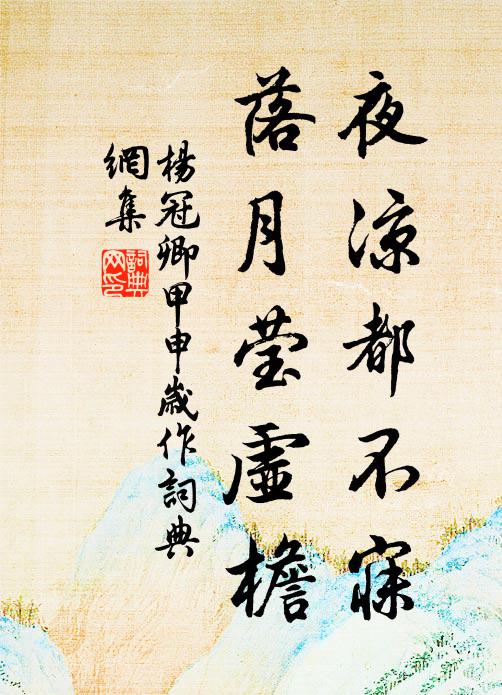 夜涼都不寐
落月莹虛檐
楊冠卿甲申歲作詞典
網集
詞典
网印